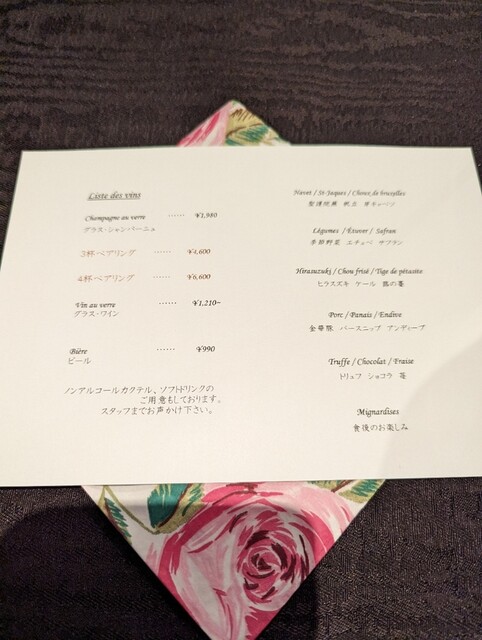 Liste des vins
Champagne au verre ...... ¥1,980
グラス・シャンパーニュ
3杯ペアリング ...... ¥4,600
4杯ペアリング ...... ¥6,600
Vin au verre ...... ¥1,210~
グラス・ワイン
Bière ...... ¥990
ビール
ノンアルコールカクテル、ソフトドリンクの
ご用意もしております。
スタッフまでお声かけ下さい。
Navet / St-Jaques / Choux de bruxylles
聖護院蕪 帆立 芽キャベツ
Légumes / Étuver / Safran
季節野菜 エチュベ サフラン
Hirasuzuki / Chou frisé / Tige de pétasite
ヒラスズキ ケール 蕗の薹
Porc / Panais / Endive
金華豚 パースニップ アンディーブ
Truffe / Chocolat / Fraise
トリュフ ショコラ 苺
Mignardises
食後のお楽しみ